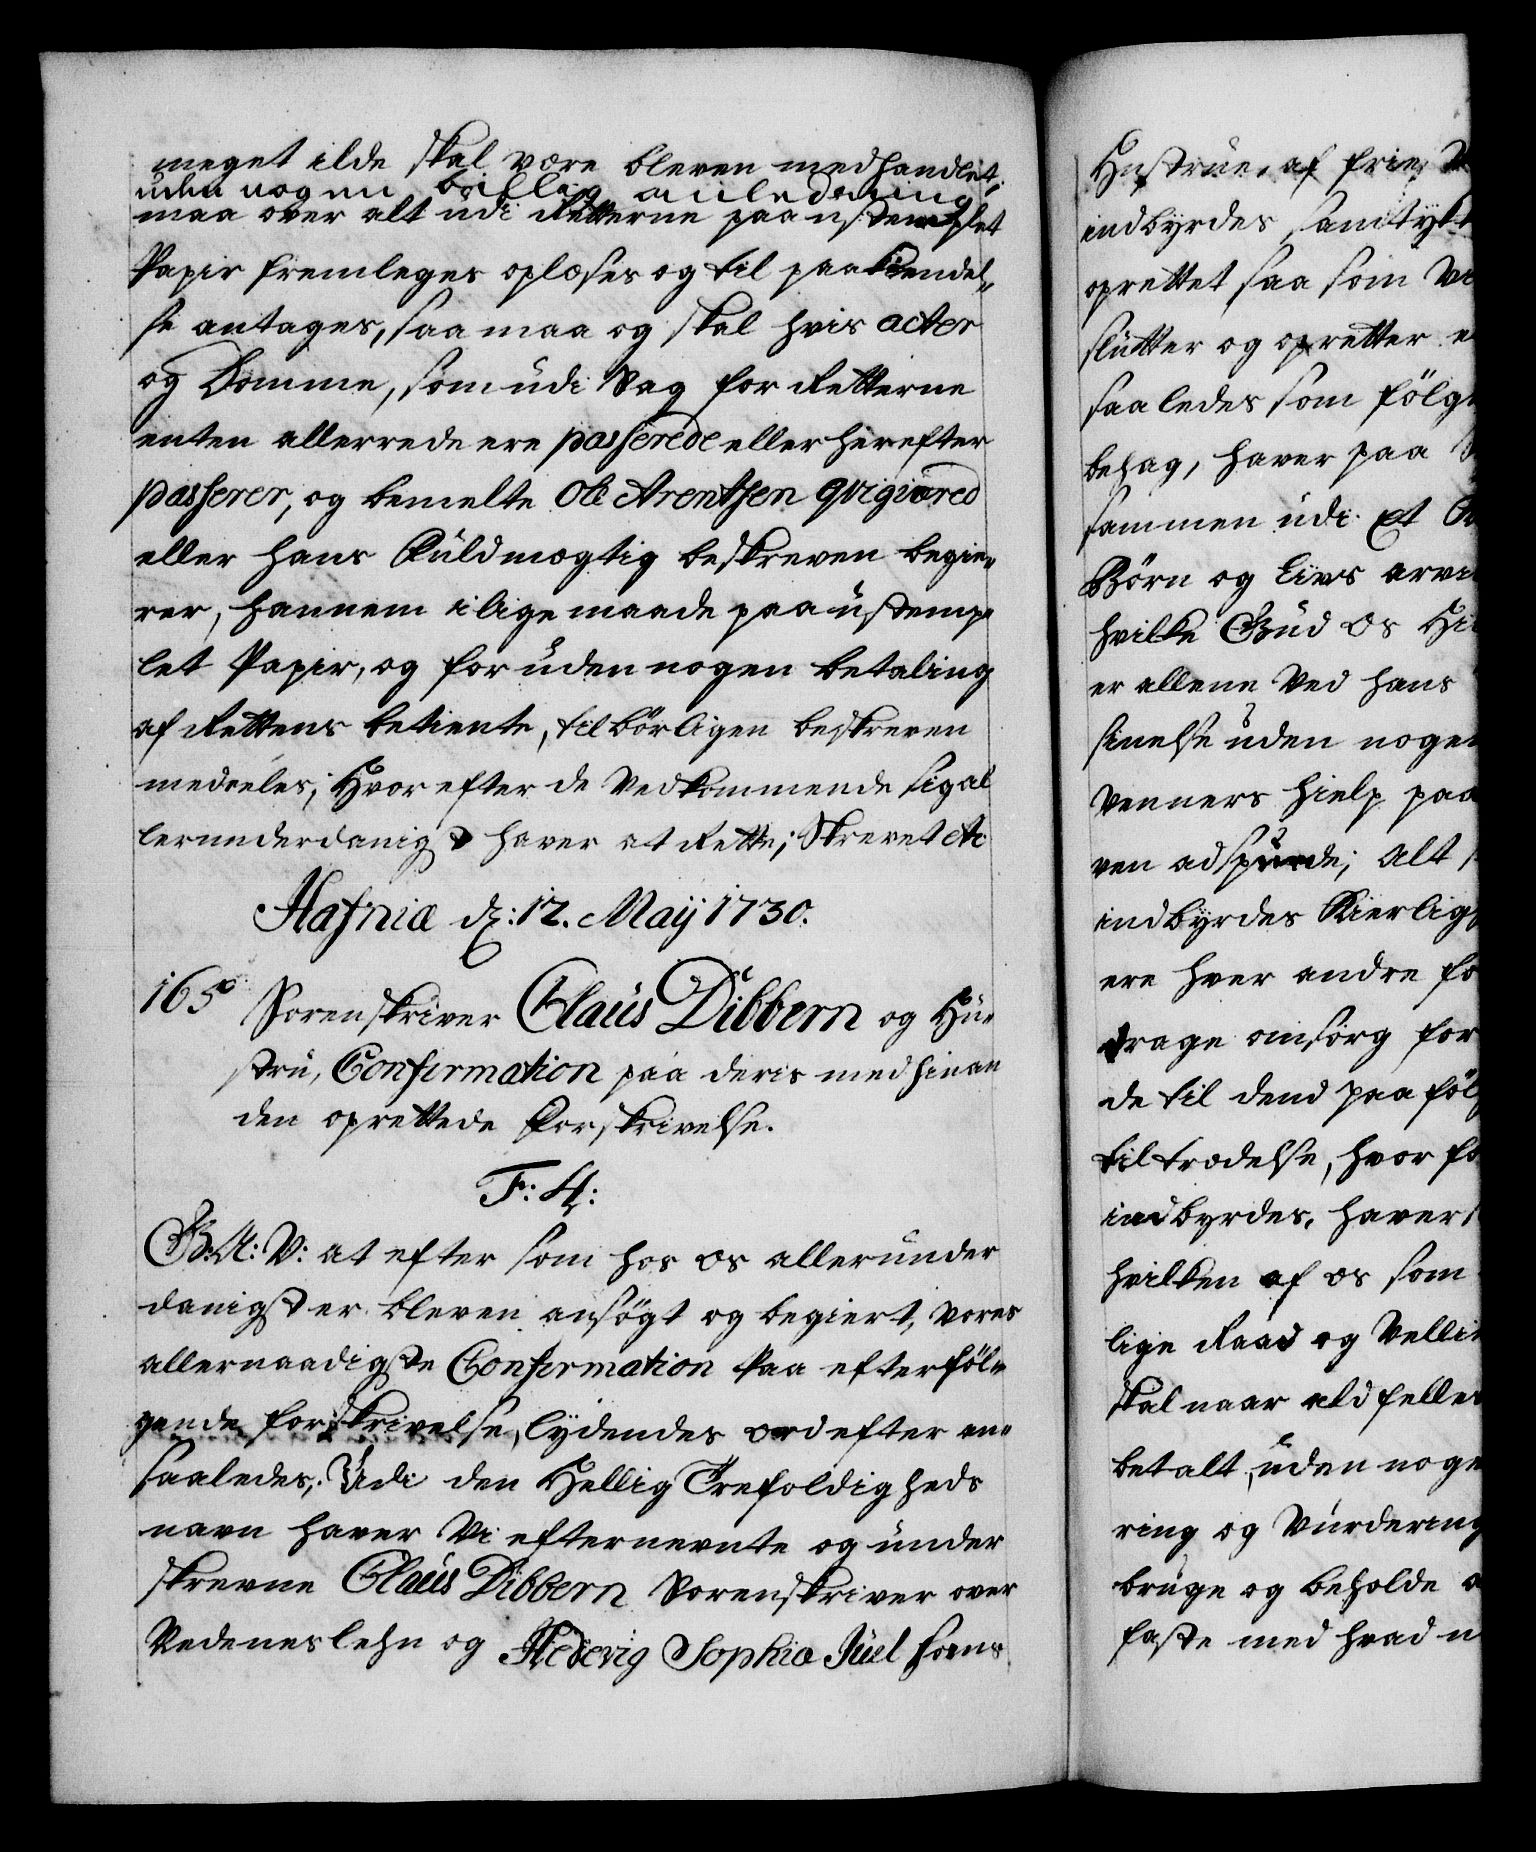 meget ilde skal være bleven medhandlet,
uden nogen billig anledning
maa over alt udi Retterne paa ustemplet
Papir fremleges oplæses og til paakiendel¬
se antages, saa maa og skal hvis acter
og Domme, som udi Sag for Retterne
enten allerrede ere passerede eller herefter
passerer, og bemelte Ole Arentsen qvigiored
eller hans Fuldmægtig beskreven begie¬
rer, hannem i lige maade paa ustemp¬
let Papir, og foruden nogen betaling
af Rettens betiente, tilbörligen beskreven
medeeles; Hvor efter de Vedkommende sig al
lerunderdanigst haver at Rette; Skrevet etc
Hafniæ d: 12. Maij 1730.
165 Sorenskriver Claus Dibbern og Hu¬
stru, Confirmation paa deris med hinan
den oprettede Forskrivelse.
F: 4:
G: A: V: at eftersom hos os allerunder
danigst er bleven ansögt og begiert, vores
allernaadigste Confirmation Paa efterföl¬
gende forskrivelse, lydendes ord efter an¬
saaledes; Udi den Hellig Trefoldigheds
navn haver Vi efternevnte og under
skrevne Claus Dibbern Sorenskriver over
Nedeneslehn og Hedevig Sophia Juel hans
Hustrue, af frie
indbyrdes samtykt
oprettet saa som Vi
slutter og opretter
saaledes som fölg
behag, haver paa
sammen udi Et
Börn og Livs arvi
hvilke Gud os
er allene Ved hans
sinelse uden nogen
Venners hielp paa
ven adspurde; alt
indbyrdes Kierlig
ere hver andre
drage omsorg for
de til dend paaföl
tiltrædelse, hvor
indbyrdes, haver
hvilken af os som
lige Raad og Velli
skal naar ald felles
betalt, uden noge
ring og Vurdering
bruge og beholde
faste med hvad